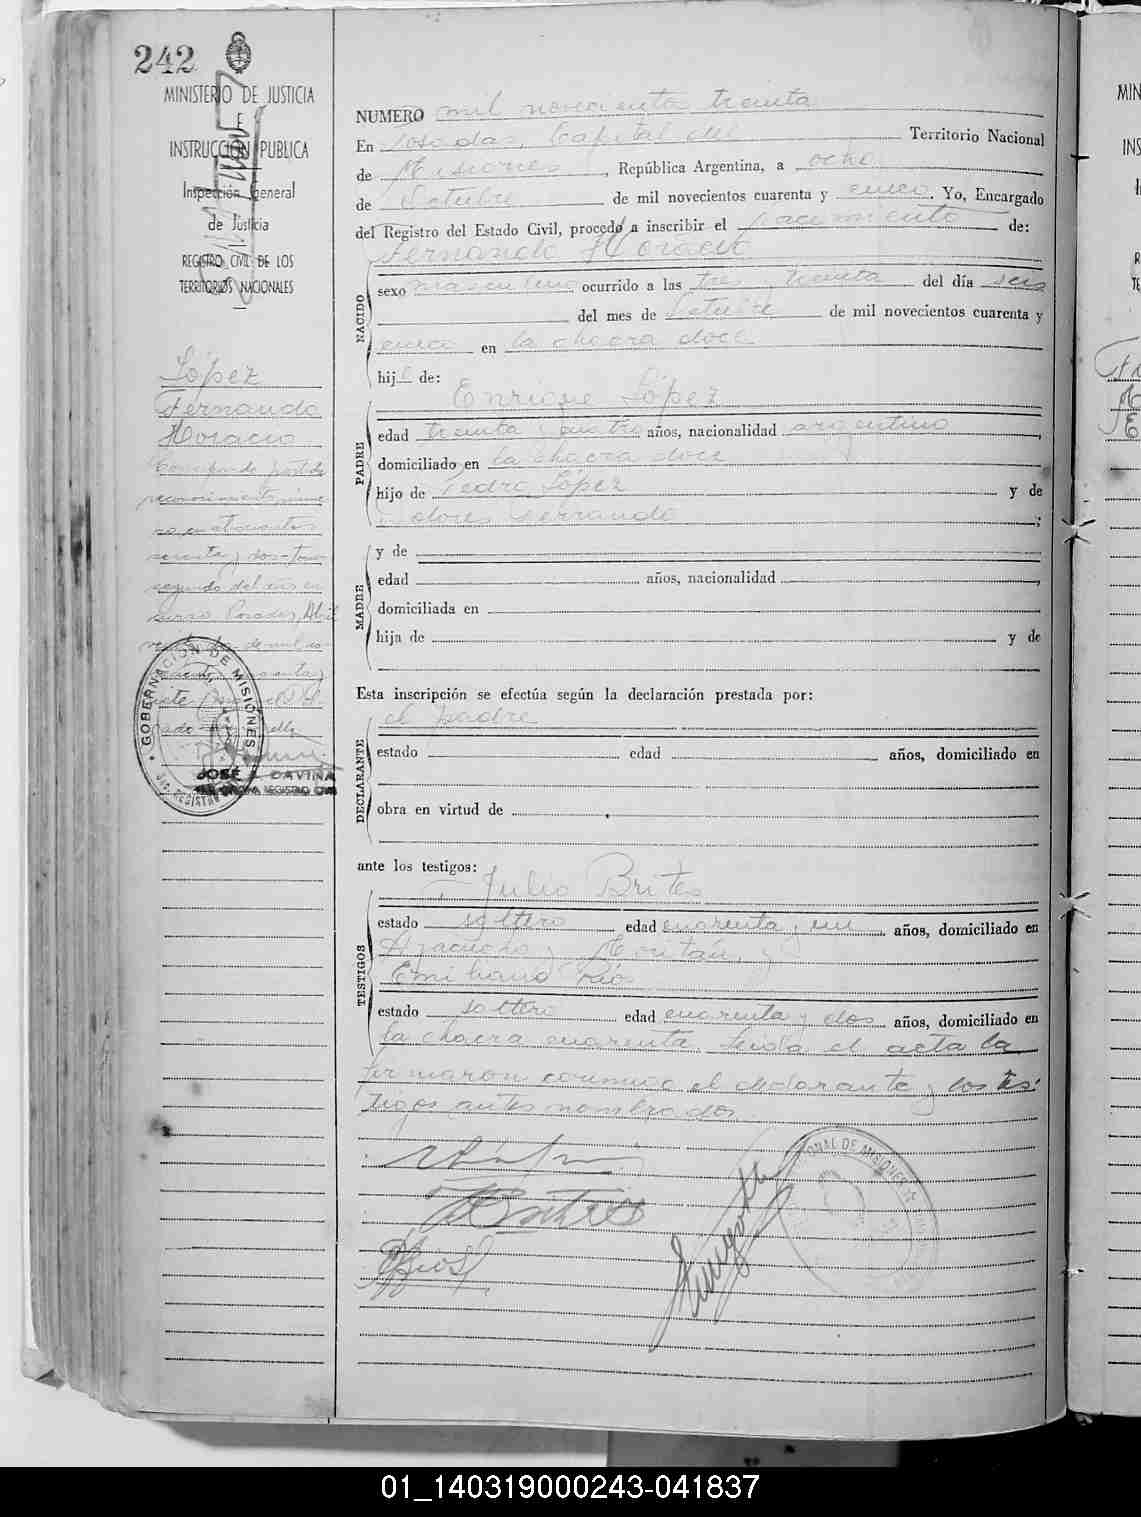 242
MINISTERIO DE JUSTICIA
E
INSTRUCCIÓN PUBLICA
Inspección General
de Justicia
REGISTRO CIVIL DE LOS
TERRITORIOS NACIONALES
López
Fernando
Horacio
Corresponde
reconocimiento
segundo del año en
curso Posadas, Abril
GOBERNACION DE MISIONES
JOSÉ DAVIÑA
REGISTRO CIVIL
NUMERO mil novecienta treinta
En Posadas, Capital del Territorio Nacional
de Misiones, República Argentina, a ocho
de Octubre de mil novecientos cuarenta y cinco. Yo, Encargado
del Registro del Estado Civil, procedo a inscribir el nacimiento de:
Fernando Horacio
NACIDO
sexo masculino ocurrido a las tres y treinta del día seis
del mes de Octubre de mil novecientos cuarenta y
cinco en la chacra doce
hijo de:
Enrique López
PADRE
edad treinta y cuatro años, nacionalidad argentino,
domiciliado en la chacra doce
hijo de Pedro López y de
Dolores Ferrando;
MADRE
y de
edad años, nacionalidad,
domiciliada en
hija de y de
Esta inscripción se efectúa según la declaración prestada por:
el padre
DECLARANTE
estado edad años, domiciliado en
obra en virtud de
ante los testigos:
Julio Brites
TESTIGOS
estado soltero edad cuarenta y un años, domiciliado en
Ayacucho y
Emiliano Rios
estado soltero edad cuarenta y dos años, domiciliado en
la chacra cuarenta. Leida el acta la
firmaron conmigo el declarante y los tes-
tigos antes nombrados.
01_140319000243-041837